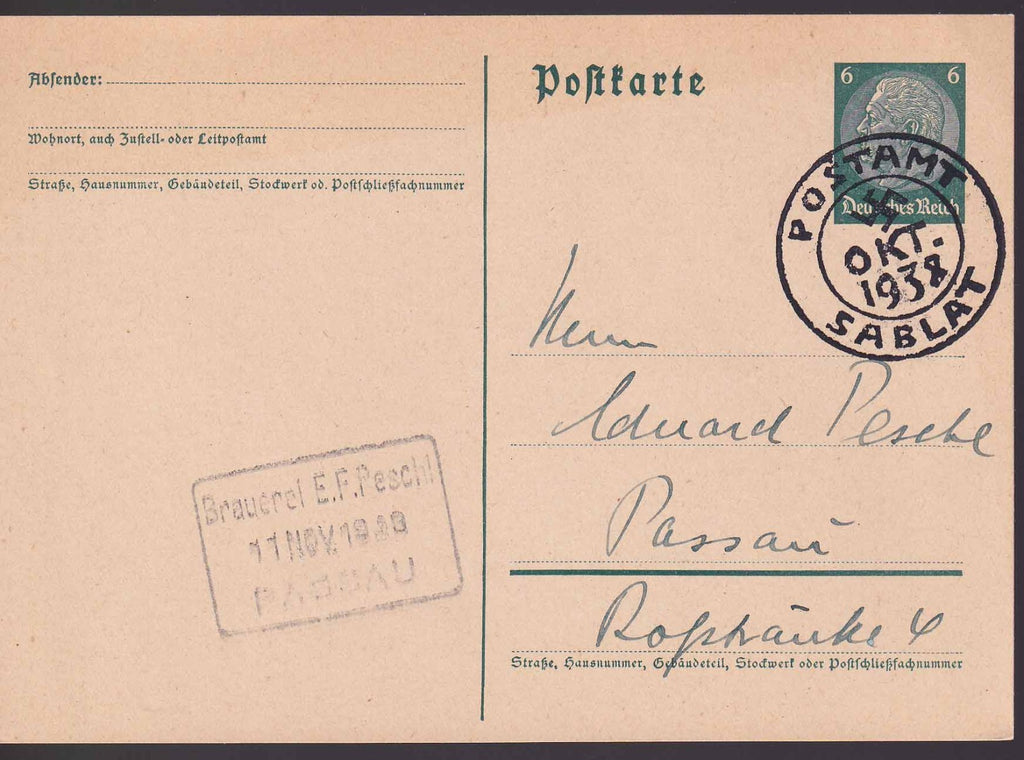 Absender:
Wohnort, auch Zustell- oder Leitpostamt
Straße, Hausnummer, Gebäudeteil, Stockwerk od. Postschließfachnummer
Postkarte
6 6
Deutsches Reich
POSTAMT
OKT.
1938
SABLAT
Herrn
Eduard Peschl
Passau
Roßtränke 4
Straße, Hausnummer, Gebäudeteil, Stockwerk oder Postschließfachnummer
Brauerei E.F.Peschl
11 NOV. 1938
PASSAU